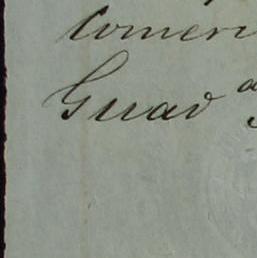 Comerc
Guad a